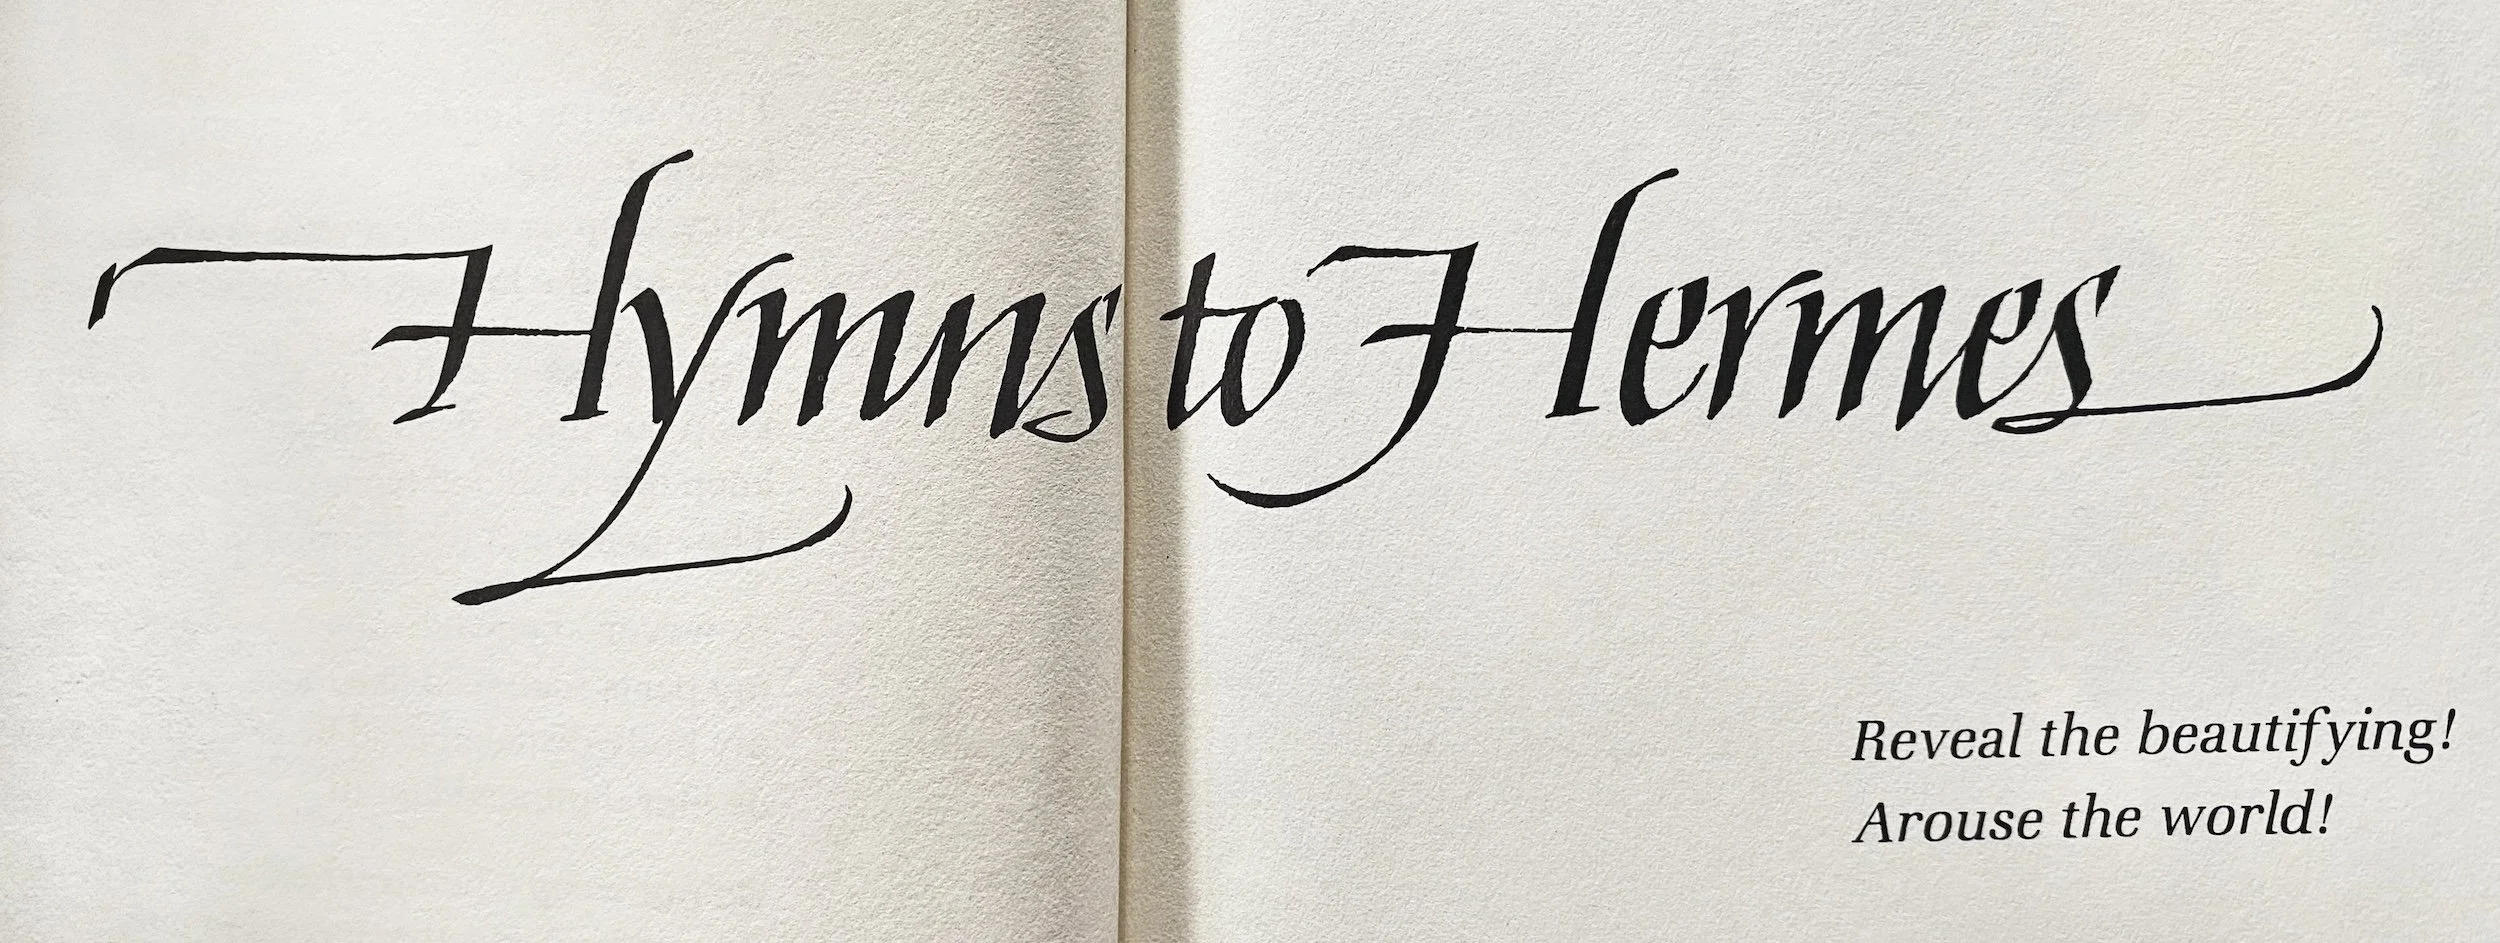 Hymns to Hermes
Reveal the beautifying!
Arouse the world!